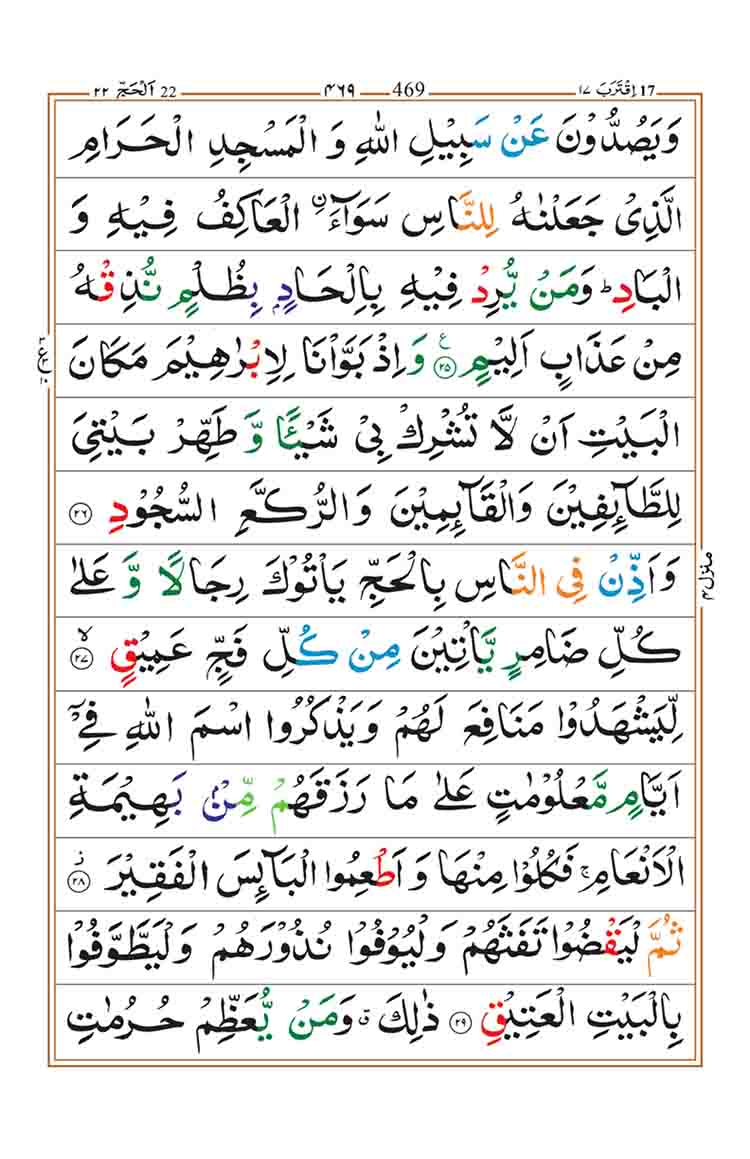 17 اِقْتَرَبَ ١٧
469 ٤٦٩
22 اَلْحَجّ ٢٢
وَيَصُدُّوْنَ عَنْ سَبِيْلِ اللّٰهِ وَ الْمَسْجِدِ الْحَرَامِ
الَّذِىْ جَعَلْنٰهُ لِلنَّاسِ سَوَآءَۨ الْعَاكِفُ فِيْهِ وَ
الْبَادِ ؕ وَمَنْ يُّرِدْ فِيْهِ بِاِلْحَادٍۭ بِظُلْمٍ نُّذِقْهُ
مِنْ عَذَابٍ اَلِيْمٍ ع ۝٢٥ وَ اِذْ بَوَّاْنَا لِاِبْرٰهِيْمَ مَكَانَ
الْبَيْتِ اَنْ لَّا تُشْرِكْ بِىْ شَيْـًٔا وَّ طَهِّرْ بَيْتِىَ
لِلطَّآئِفِيْنَ وَالْقَآئِمِيْنَ وَالرُّكَّعِ السُّجُوْدِ ۝٢٦
وَاَذِّنْ فِى النَّاسِ بِالْحَجِّ يَاْتُوْكَ رِجَالًا وَّ عَلٰى
كُلِّ ضَامِرٍ يَّاْتِيْنَ مِنْ كُلِّ فَجٍّ عَمِيْقٍ ۙ ۝٢٧
لِّيَشْهَدُوْا مَنَافِعَ لَهُمْ وَيَذْكُرُوا اسْمَ اللّٰهِ فِىْۤ
اَيَّامٍ مَّعْلُوْمٰتٍ عَلٰى مَا رَزَقَهُمْ مِّنْۢ بَهِيْمَةِ
الْاَنْعَامِ ۚ فَكُلُوْا مِنْهَا وَ اَطْعِمُوا الْبَآئِسَ الْفَقِيْرَ ز ۝٢٨
ثُمَّ لْيَقْضُوْا تَفَثَهُمْ وَلْيُوْفُوْا نُذُوْرَهُمْ وَلْيَطَّوَّفُوْا
بِالْبَيْتِ الْعَتِيْقِ ۝٢٩ ذٰلِكَ ق وَمَنْ يُّعَظِّمْ حُرُمٰتِ
منزل ٤